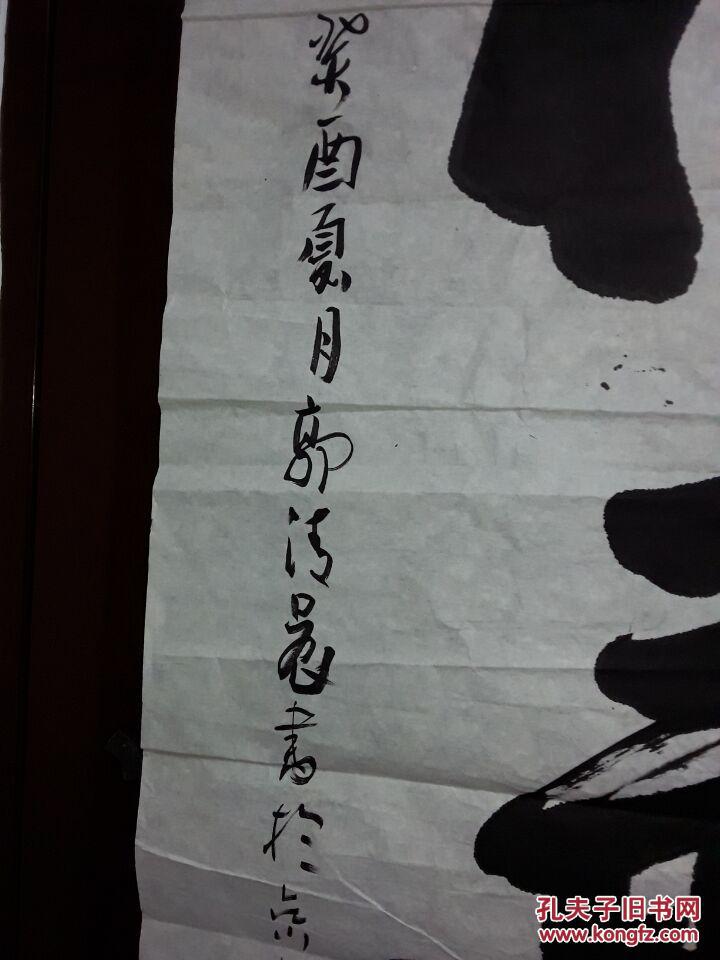 癸酉夏月郭清晨書於京
孔夫子旧书网
www.kongfz.com